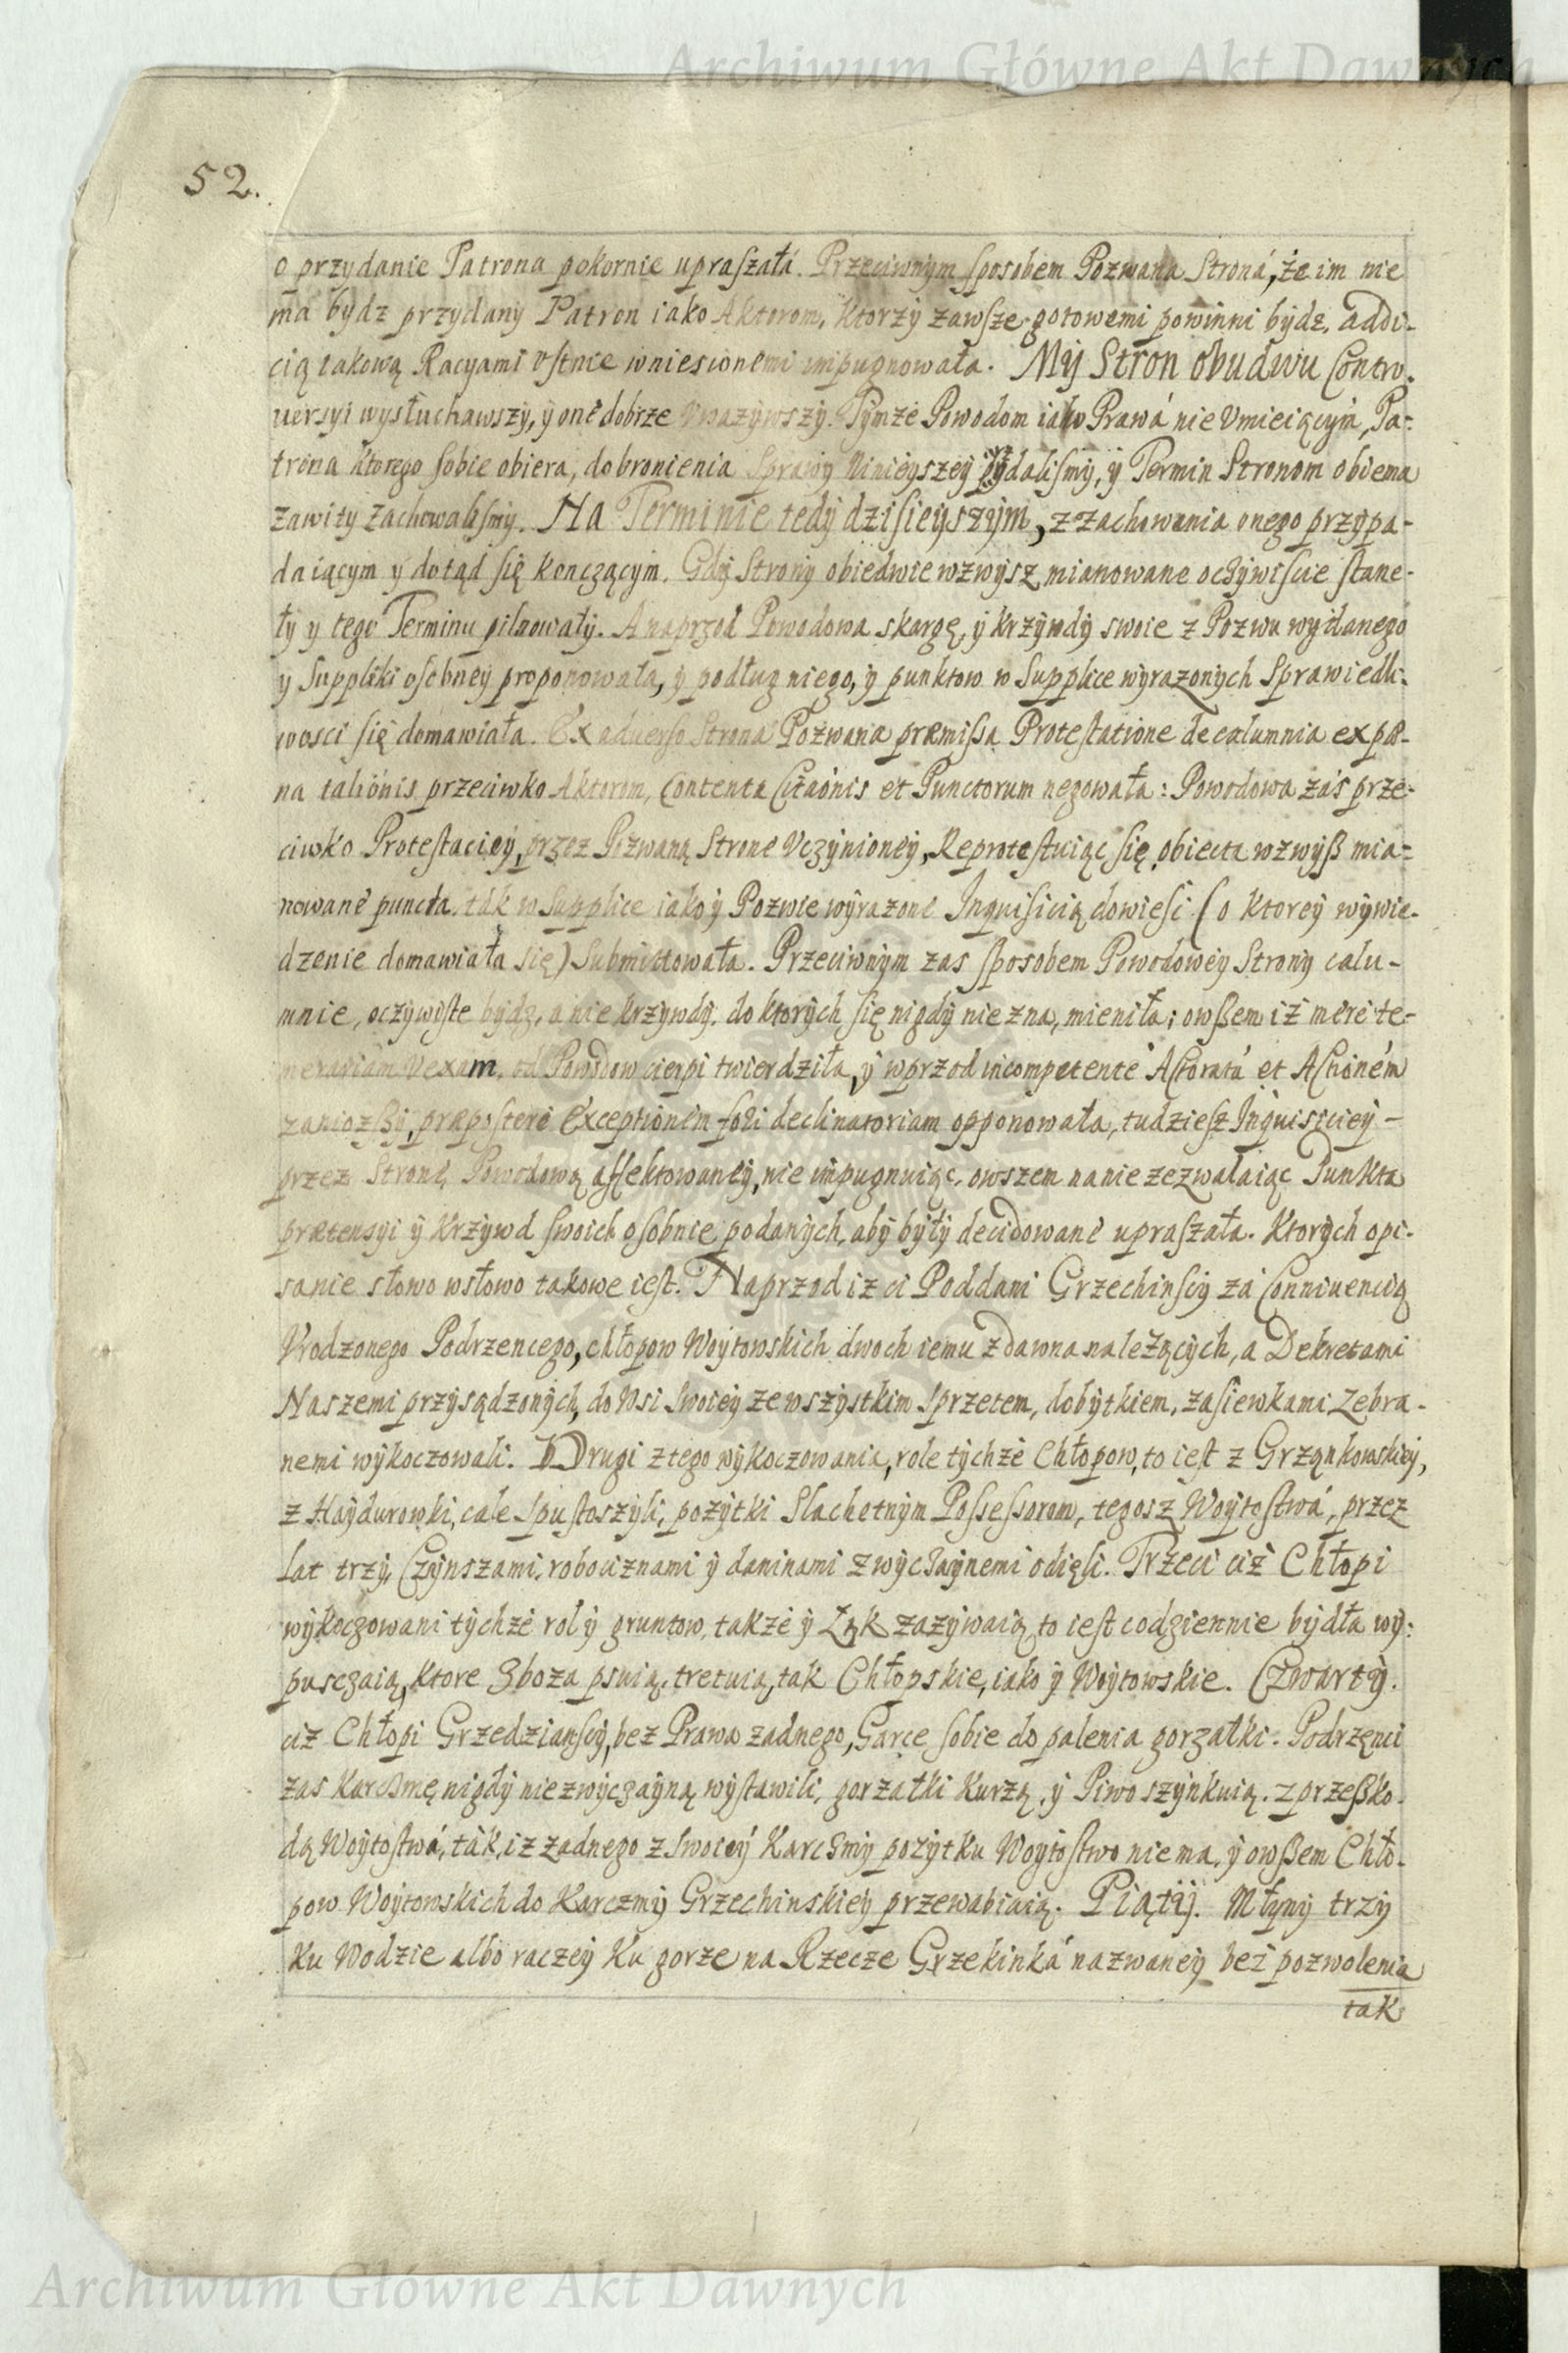 Archiwum Główne Akt Dawnych
52.
o przydanie Patrona pokornie upraszała. Przeciwnym sposobem Pozwana Stroná, że im nie
ma bydz przydany Patron iako Aktorom, ktorzy zawsze gotowemi powinni bydz, addi-
cią takową Racyami ustnie wniesionemi impugnowała. My Stron obudwu Contro-
uersyi wysłuchawszy, y one dobrze Uwazywszy. Tymże Powodom iako Prawá nie Umieiącym, Pa-
trona ktorego sobie obiera, do bronienia Sprawy Ninieyszey przydalismy, y Termin Stronom obiema
zawity zachowalismy. Na Terminie tedy dzisieyszym, z zachowania onego przypa-
daiącym y dotąd się konczącym. Gdy Strony obiedwie wzwysz mianowane oczywiscie stane-
ły y tego Terminu pilnowały. A naprzod Powodowa skargę, y krzywdy swoie z Pozwu wydanego
y Suppliki osobney proponowała, y podług niego, y punktow w Supplice wyrazonych Sprawiedli-
wosci się domawiała. Ex aduerso Strona Pozwana præmissa Protestatione de calumnia ex pæ-
na talionis przeciwko Aktorom, Contenta Citaonis et Punctorum negowała: Powodowa zás prze-
ciwko Protestaciey, przez Pozwaną Strone Uczynioney, Reprotestuiąc się, obiecta wzwyß mia-
nowane puncta, tak w Supplice iako y Pozwie wyrazone Inquisicią dowiesi (o ktorey wywie-
dzenie domawiała się) Submittowała. Przeciwnym zas sposobem Powodowey Strony calu-
mnie, oczywiste bydz, a nie krzywdy, do ktorych się nigdy nie zna, mieniła; owßem iż mere te-
merariam Vexam, od Powodow cierpi twierdziła, y wprzod incompetente Actoratú et Actioném
zaniozszy, præpostere Exceptionem fori declinatoriam opponowała, tudziesz Inquisiciey –
przez Stronę Powodową affektowaney, nie impugnuiąc, owszem na nie zezwalaiąc Punkta
prætensyi y Krzywd swoich osobnie podanych, aby były decidowane upraszała. Ktorych opi-
sanie słowo w słowo takowe iest. Naprzod iz ci Poddani Grzechinscy zá Conniuencią
Urodzonego Podrzencego, chłopow Woytowskich dwoch iemu z dawna należących, a Dekretami
Naszemi przysądzonych, do Wsi Swoiey ze wszystkim sprzetem, dobytkiem, zasiewkami Zebra-
nemi wykoczowali. Drugi z tego wykoczowania, role tychże Chłopow, to iest z Grząnkowskiey,
z Haydurowki, cale spustoszyli, pozytki Slachetnym Possessorom, tegosz Woytostwá, przez
lat trzy, Czynszami, robociznami y daninami zwyczaynemi odięli. Trzeci ciż Chłopi
wykoczowani tychże rol y gruntow, także y Łąk zazywaią, to iest codziennie bydła wy-
puszczaią, ktore Zboza psuią, tretuią, tak Chłopskie, iako y Woytowskie. Czwarty.
ciż Chłopi Grzedzianscy, bez Prawa zadnego, Garce sobie do palenia gorzałki. Podrzęnci
zas Karczmę nigdy niezwyczayną wystawili, gorzałki Kurzą, y Piwo szynkuią. z przeßko-
dą Woytostwá, tak, iz zadnego z Swoiey Karczmy pozytku Woytostwo nie ma, y owßem Chło-
pow Woytowskich do Karczmy Grzechinskiey przewabiaią. Piąty. Młyny trzy
Ku Wodzie albo raczey Ku gorze na Rzecze Grzekinká nazwaney beż pozwolenia
tak
Archiwum Główne Akt Dawnych